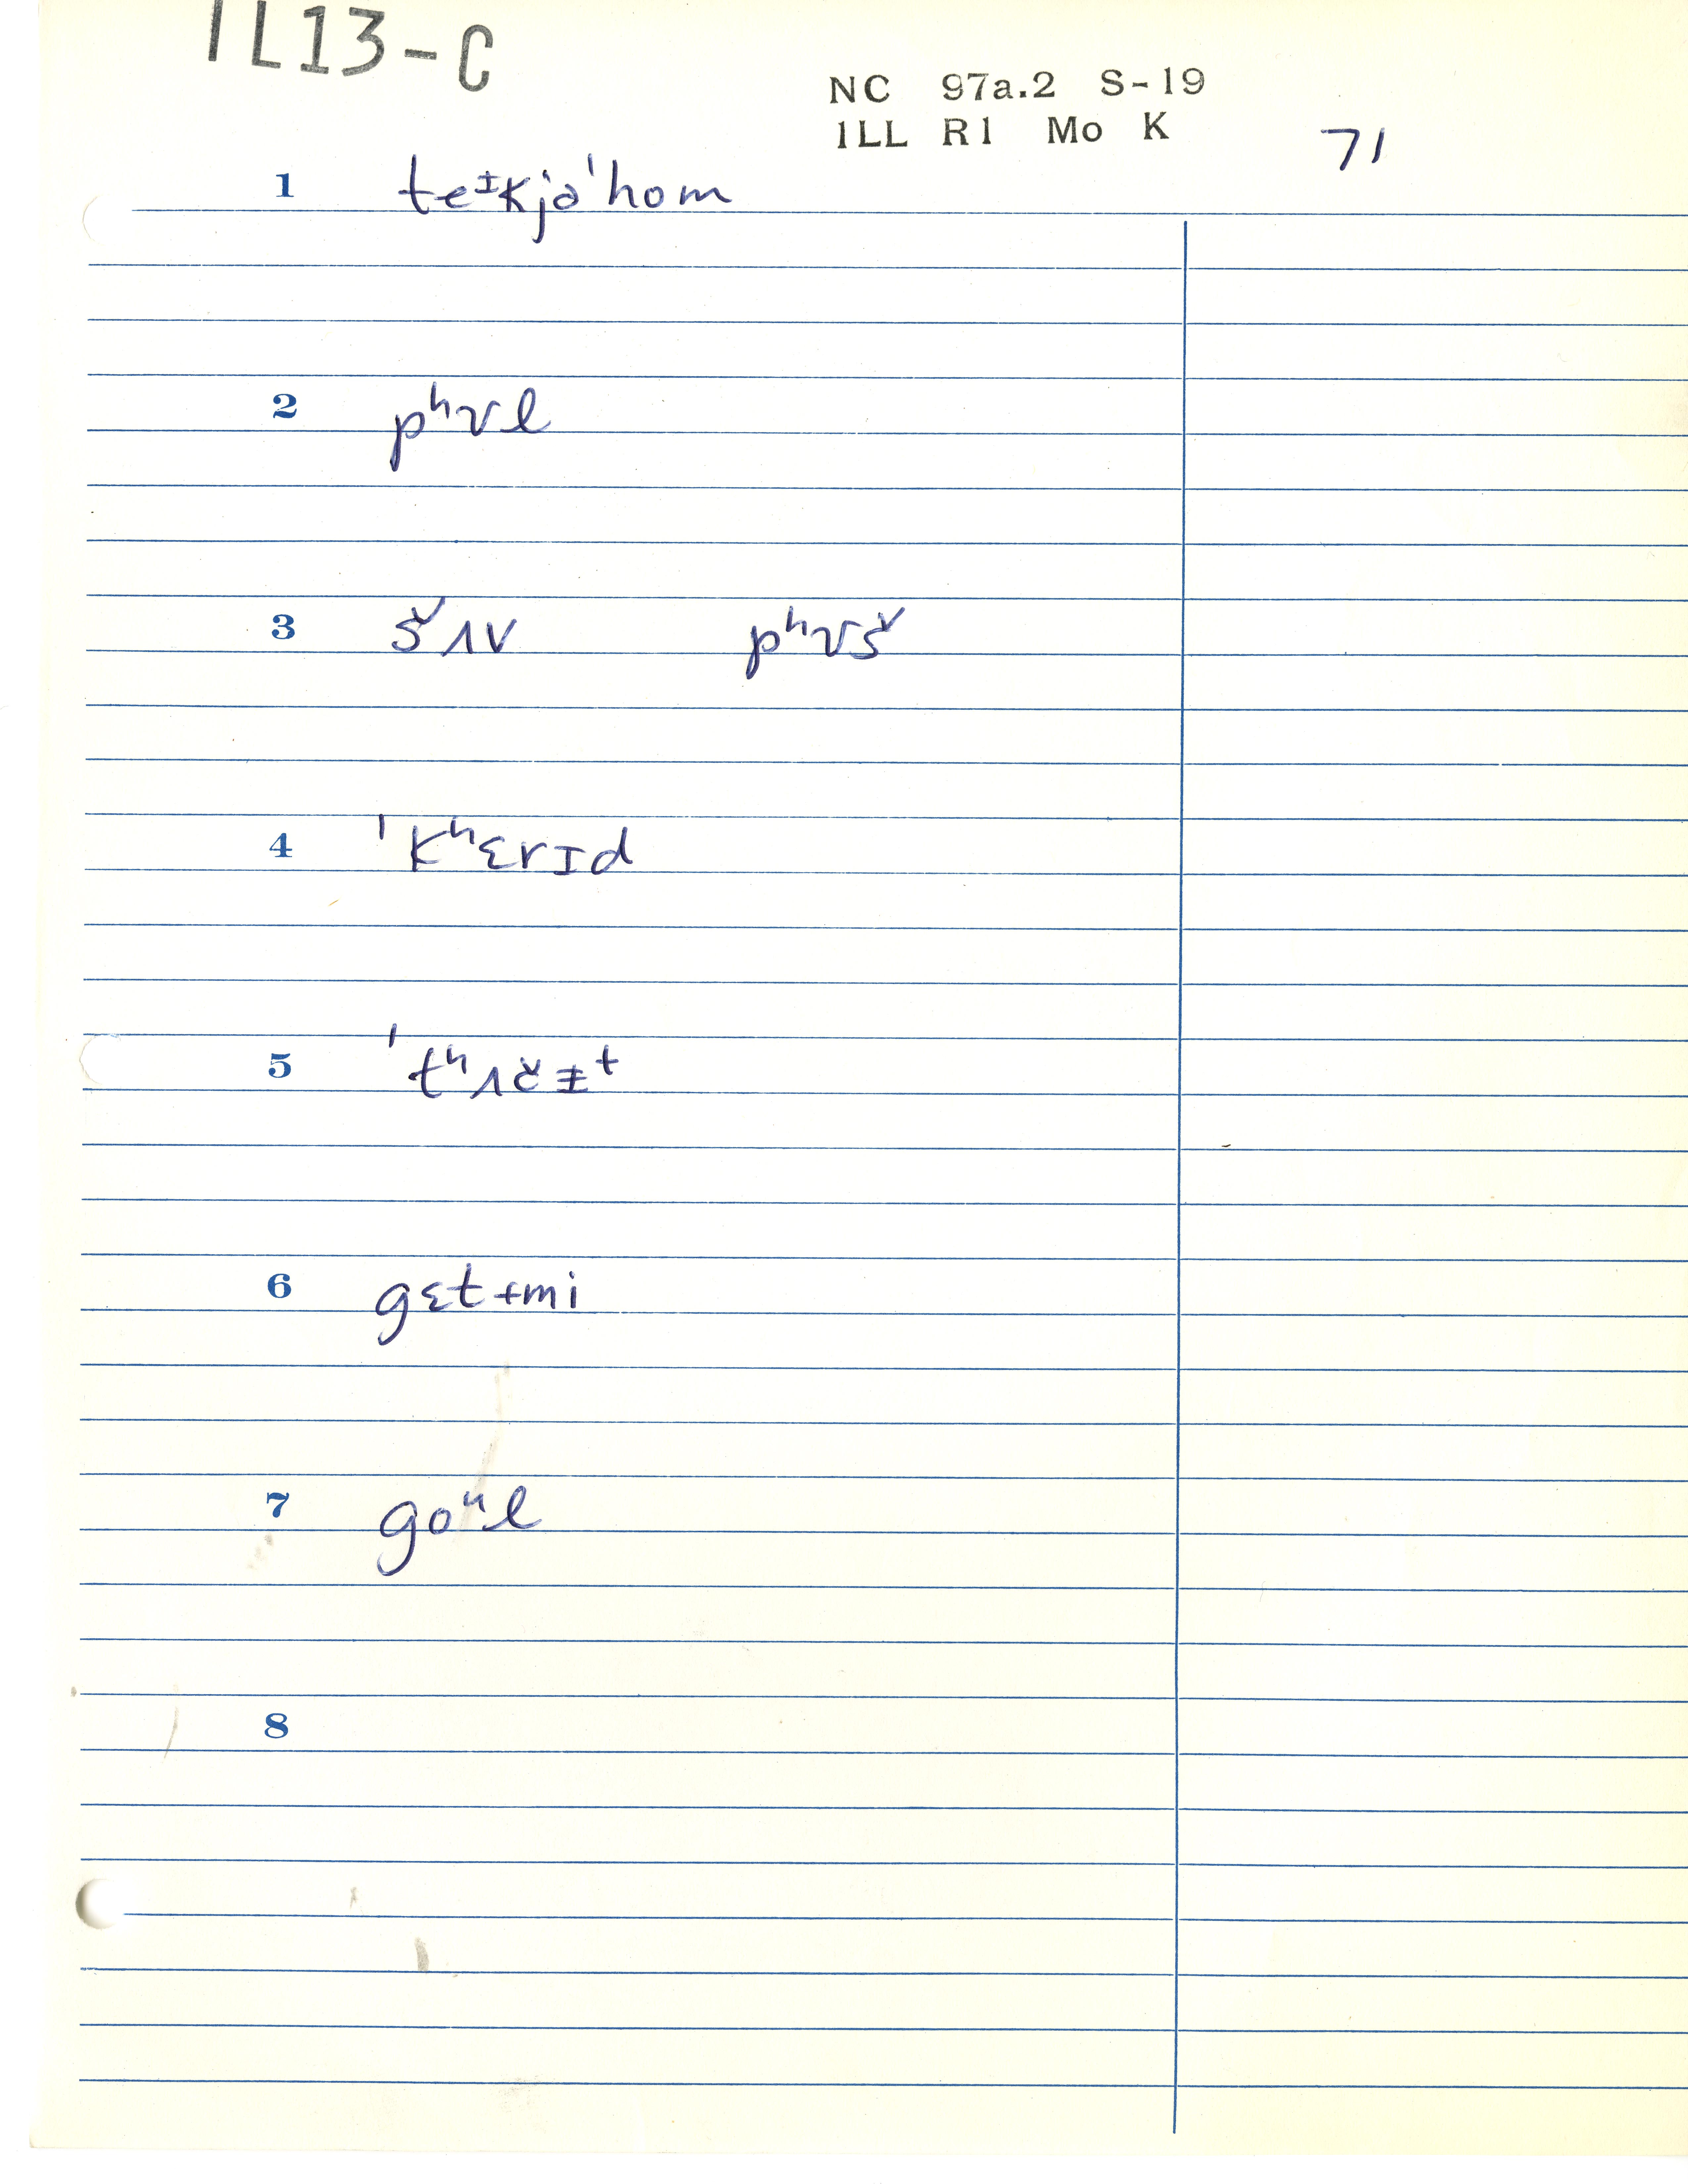 IL13-C
NC 97a.2 S-19
1LL R1 Mo K
71
1 teᶦkjəˈhom
2 pʰʊl
3 šʌv pʰʊš
4 ˈkʰɛrɪd
5 ˈtʰʌčɨ⁺
6 gɛtɨmi
7 goᵘl
8